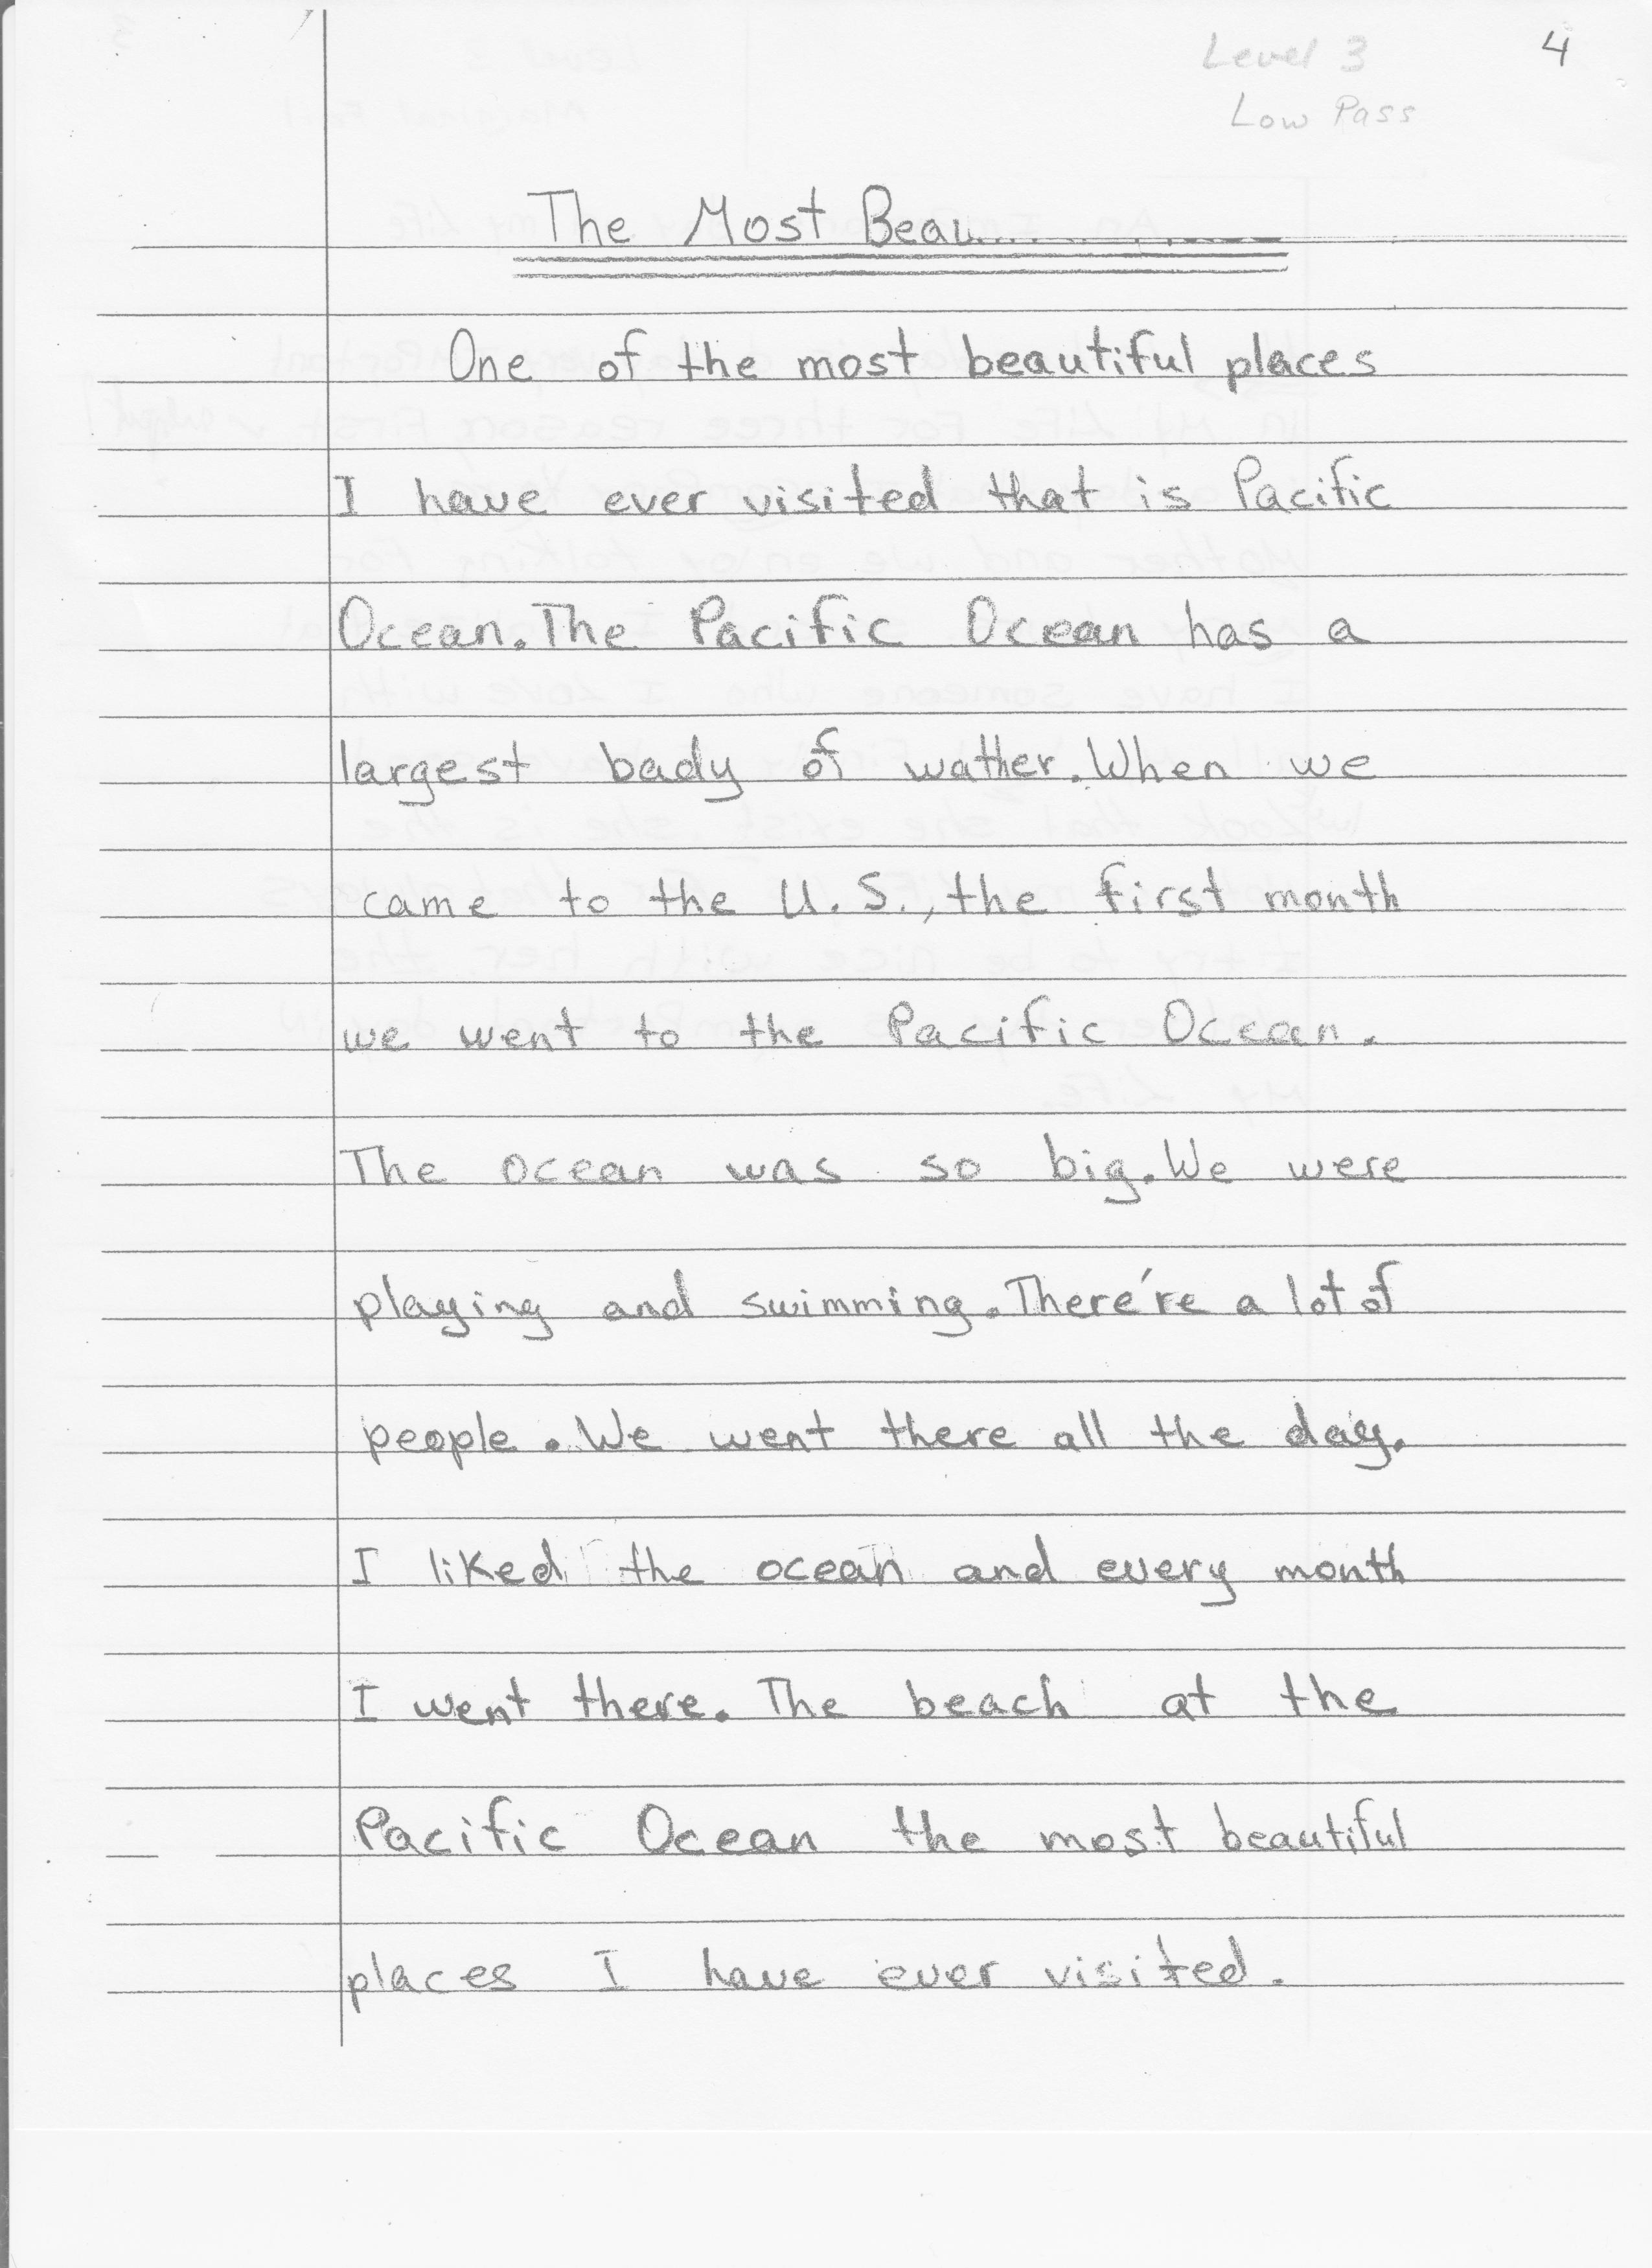 Level 3
4
Low Pass
The Most
One of the most beautiful places
I have ever visited that is Pacific
Ocean. The Pacific Ocean has a
largest bady of wather. When we
came to the U.S., the first month
we went to the Pacific Ocean.
The ocean was so big. We were
playing and swimming. There're a lot of
people. We went there all the day.
I liked the ocean and every month
I went there. The beach at the
Pacific Ocean the most beautiful
places I have ever visited.